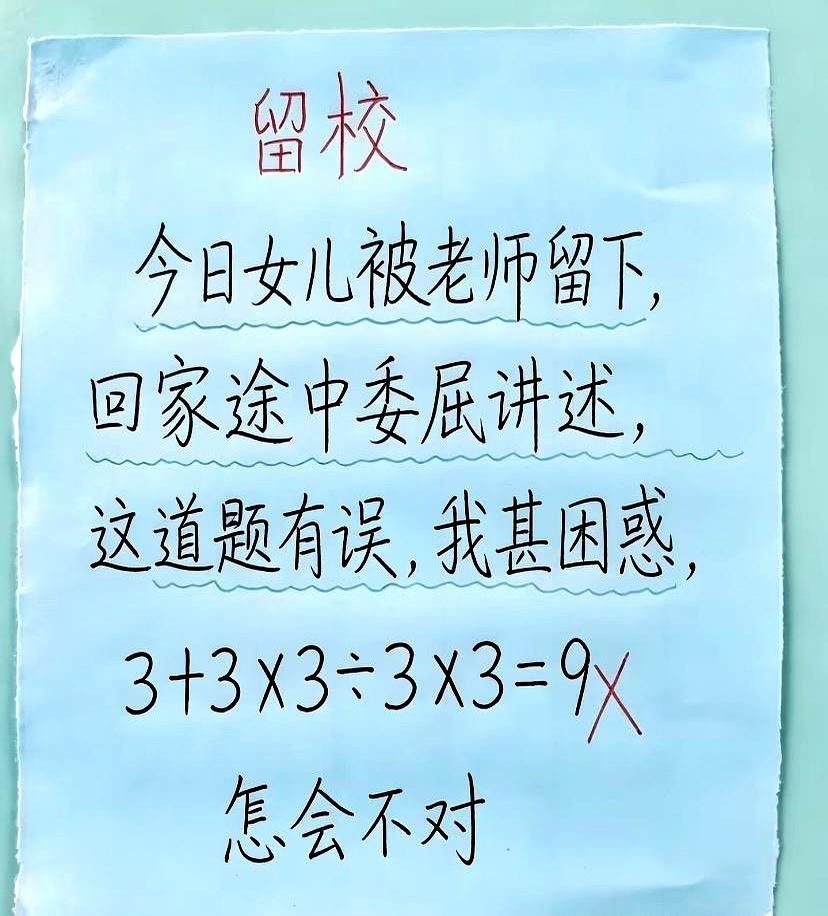 留校
今日女儿被老师留下,
回家途中委屈讲述,
这道题有误,我甚困惑,
3+3×3÷3×3=9×
怎会不对